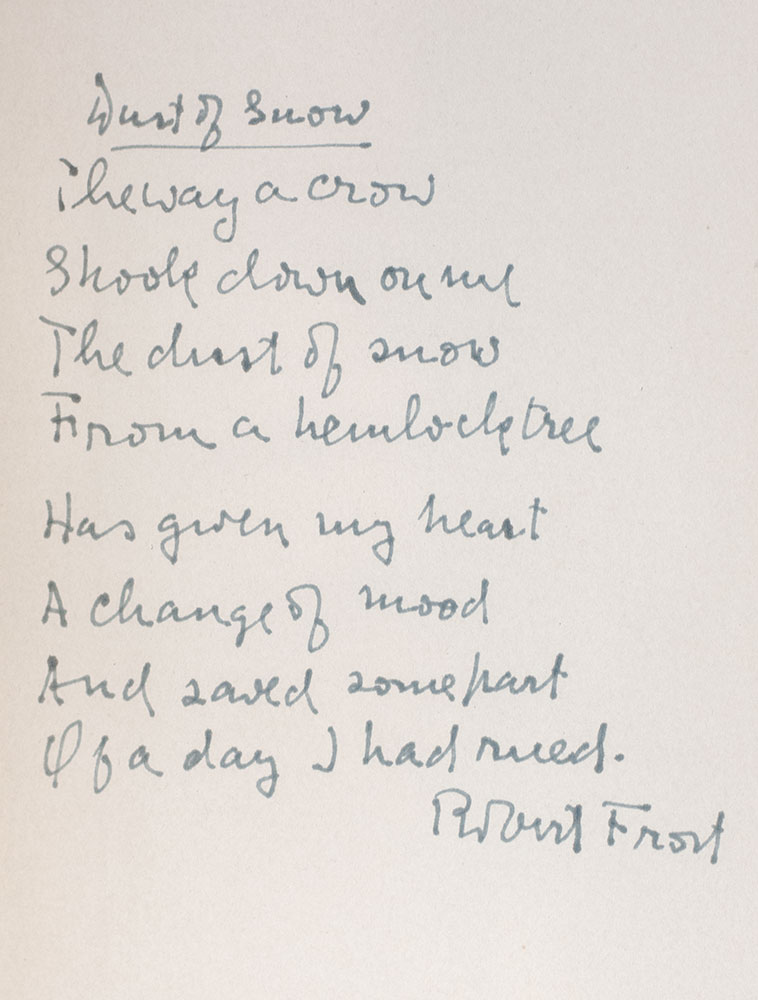 Dust of Snow
The way a crow
Shook down on me
The dust of snow
From a hemlock tree
Has given my heart
A change of mood
And saved some part
Of a day I had rued.
Robert Frost